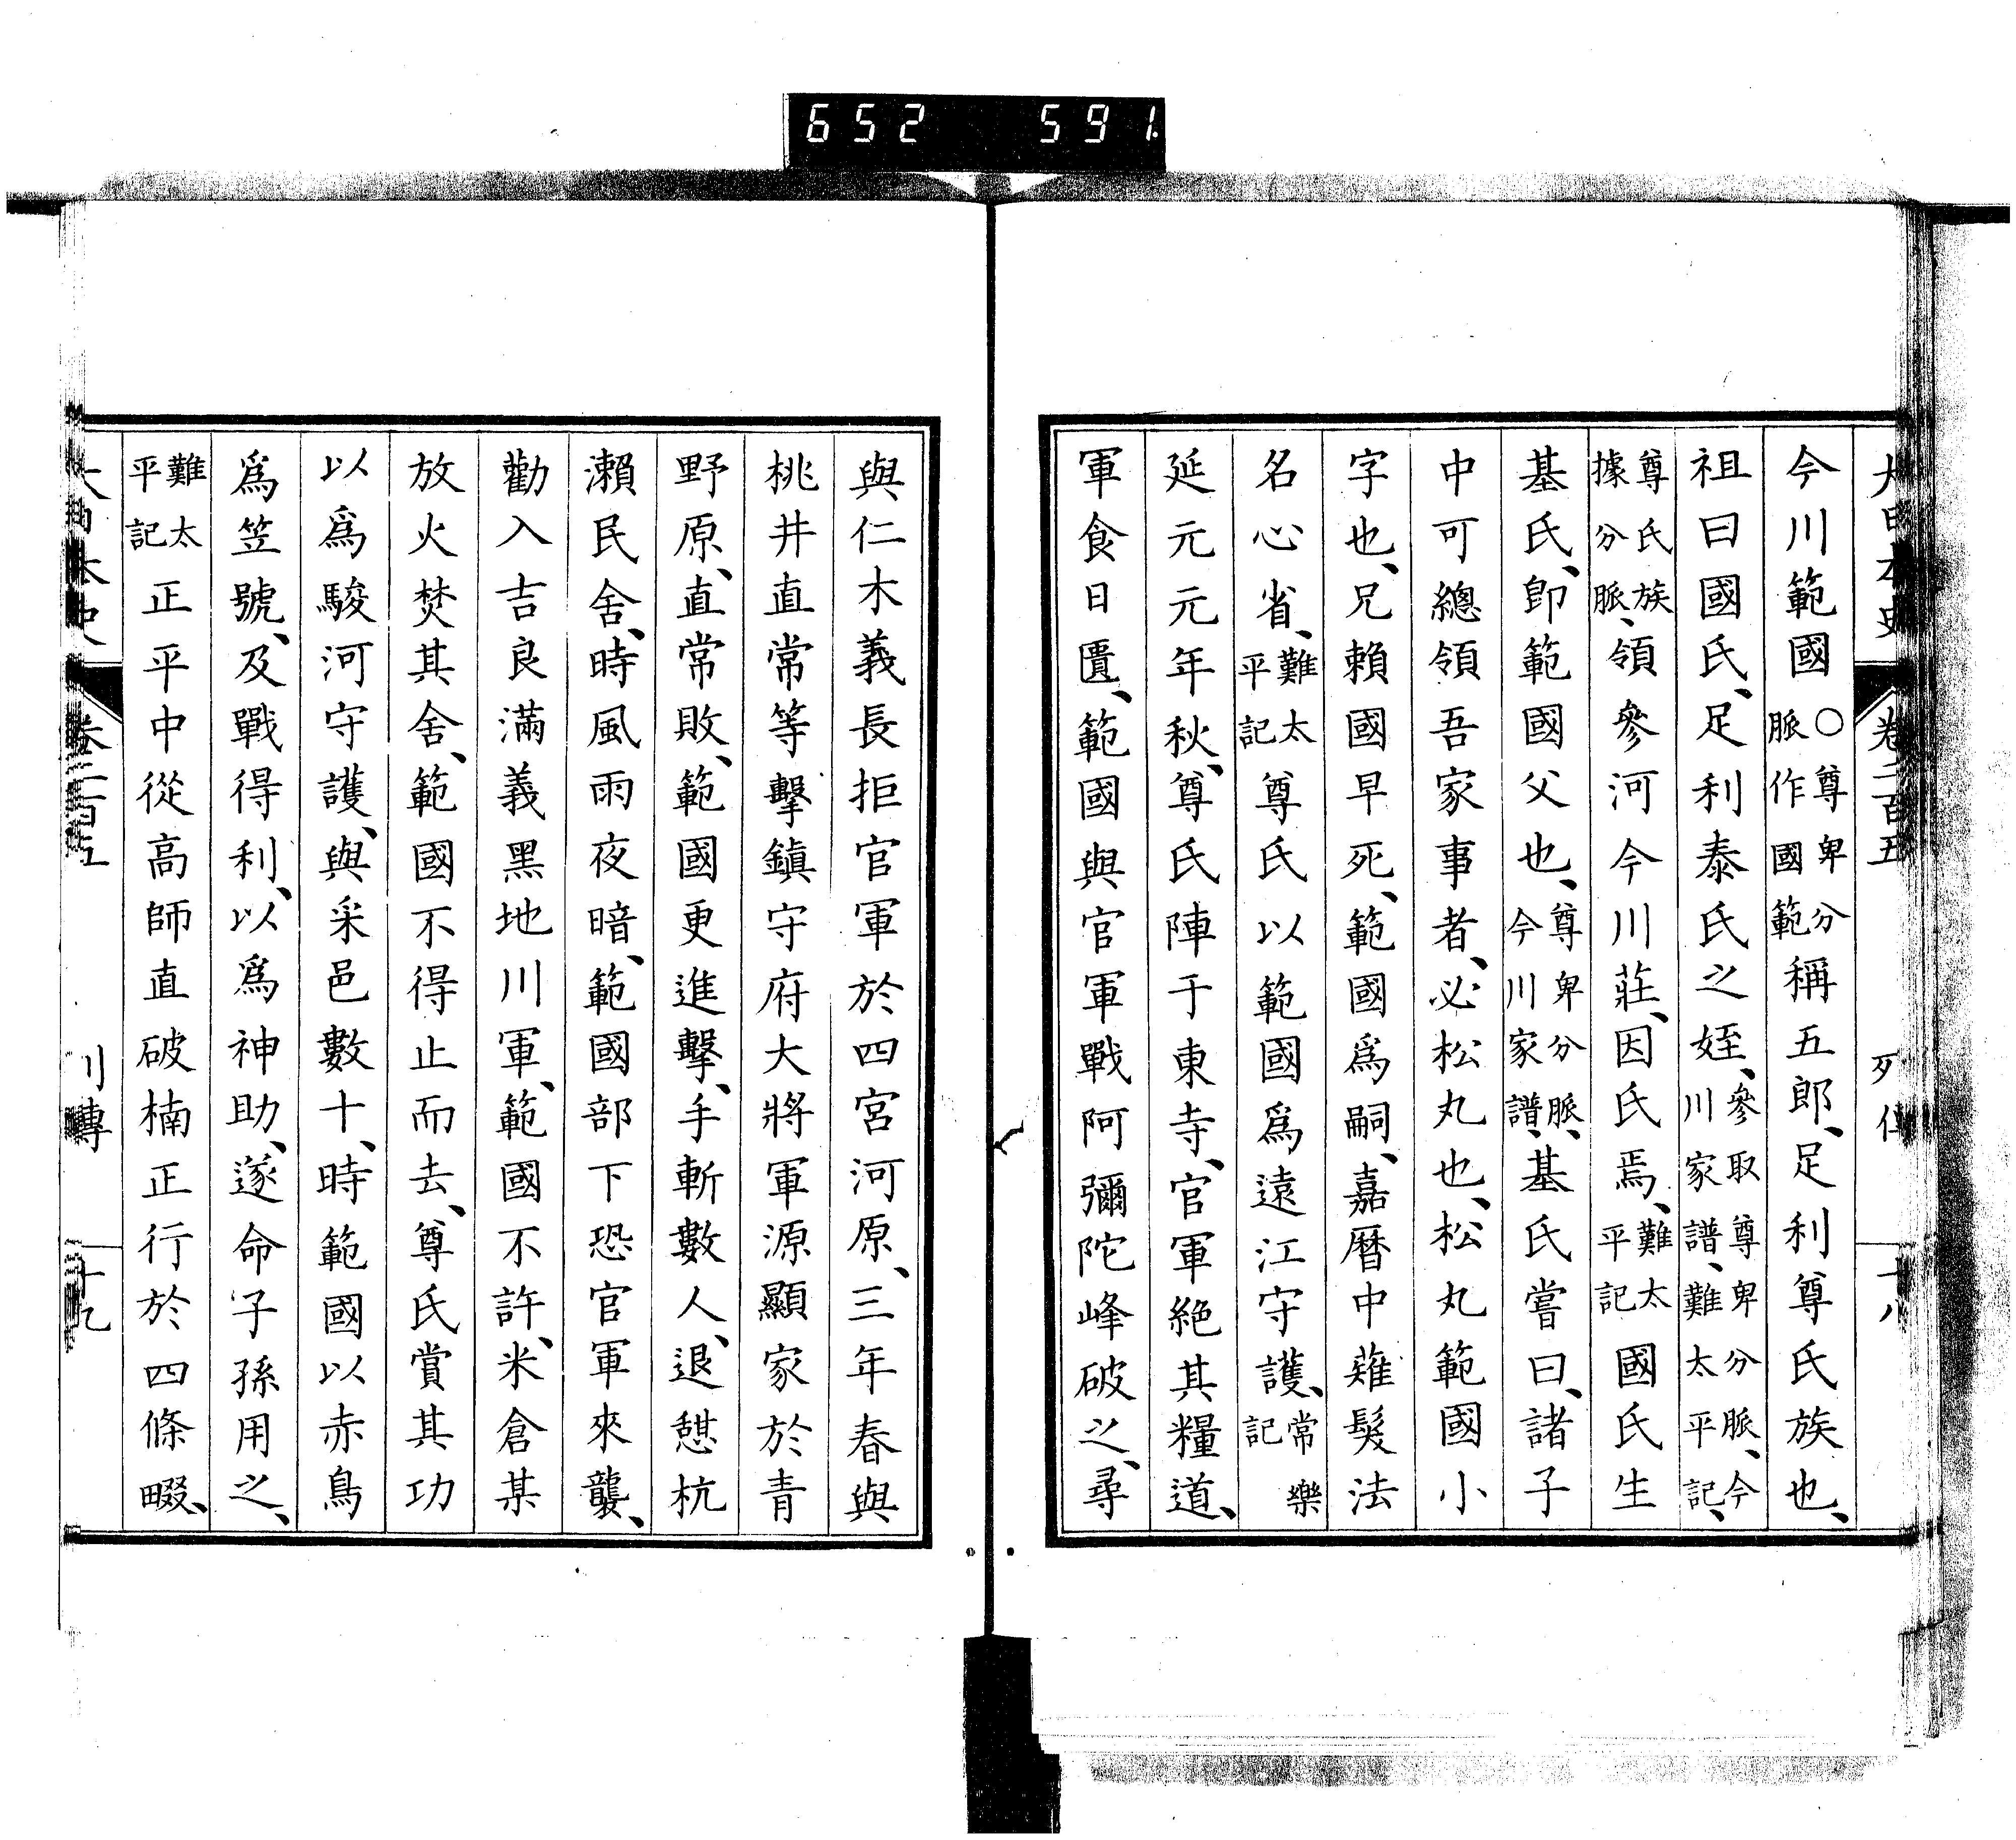 652 591
大日本史 卷二百五 列傳 十八
今川範國○尊卑分脈作國範稱五郎、足利尊氏族也、
祖曰國氏、足利泰氏之姪、參取尊卑分脈、今川家譜、難太平記、
尊氏族據分脈、領參河今川莊、因氏焉、難太平記國氏生
基氏、卽範國父也、尊卑分脈、今川家譜、基氏嘗曰、諸子
中可總領吾家事者、必松丸也、松丸範國小
字也、兄賴國早死、範國爲嗣、嘉曆中薙髮法
名心省、難太平記尊氏以範國爲遠江守護、常樂記
延元元年秋、尊氏陣于東寺、官軍絶其糧道、
軍食日匱、範國與官軍戰阿彌陀峰破之、尋
與仁木義長拒官軍於四宮河原、三年春與
桃井直常等擊鎮守府大將軍源顯家於青
野原、直常敗、範國更進擊、手斬數人、退憇杭
瀨民舍、時風雨夜暗、範國部下恐官軍來襲、
勸入吉良滿義黑地川軍、範國不許、米倉某
放火焚其舍、範國不得止而去、尊氏賞其功
以爲駿河守護、與采邑數十、時範國以赤鳥
爲笠號、及戰得利、以爲神助、遂命子孫用之、
難太平記正平中從高師直破楠正行於四條畷、
大日本史 卷二百五 列傳 十九